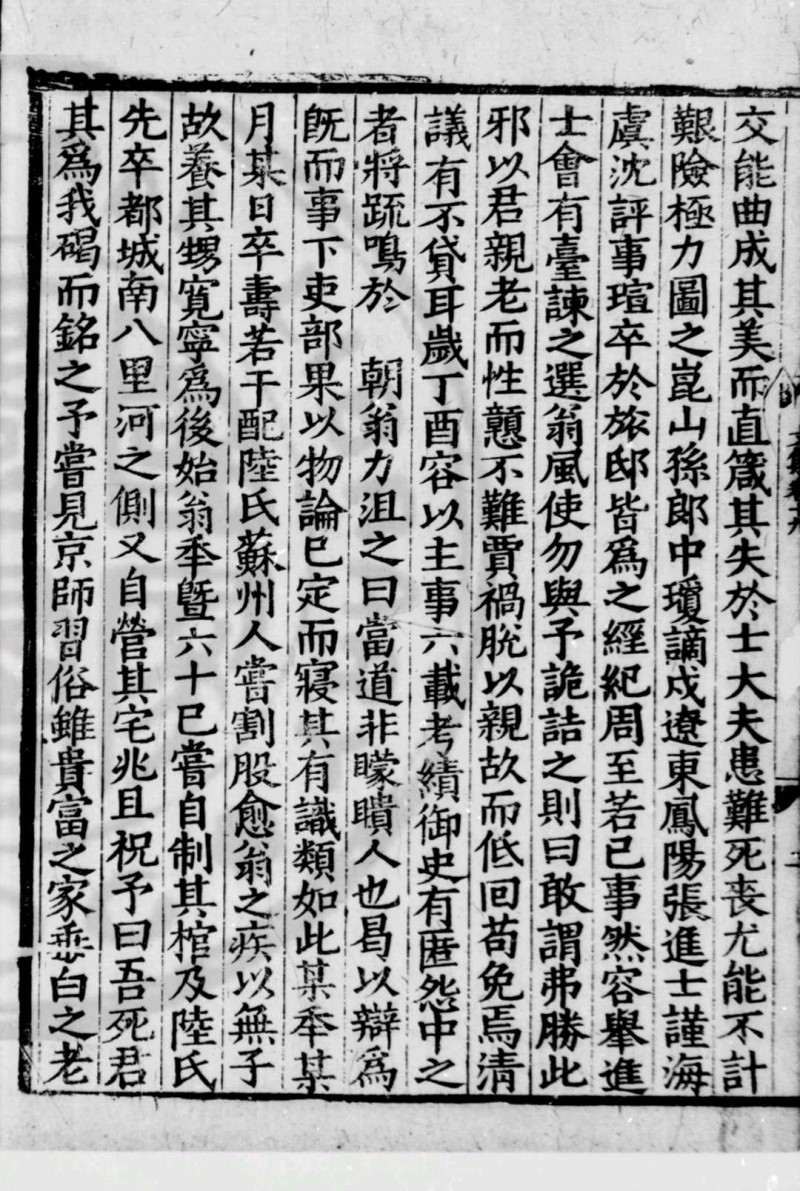 交能曲成其美而直箴其失於士大夫患難死喪尤能不計
艱險極力圖之崑山孫郎中瓊謫戍遼東鳳陽張進士謹海
虞沈評事瑄卒於旅邸皆爲之經紀周至若已事然容舉進
士會有臺諫之選翁風使勿與予詭詰之則曰敢謂弗勝此
邪以君親老而性戇不難賈禍脫以親故而低回苟免焉清
議有不貸耳歲丁酉容以主事六載考績御史有匿怨中之
者將疏鳴於 朝翁力沮之曰當道非矇瞶人也曷以辯爲
旣而事下吏部果以物論已定而寢其有識類如此某年某
月某日卒壽若干配陸氏蘇州人嘗割股愈翁之疾以無子
故養其甥寬寧爲後始翁年曁六十已嘗自制其棺及陸氏
先卒都城南八里河之側又自營其宅兆且祝予曰吾死君
其爲我碣而銘之予嘗見京師習俗雖貴富之家垂白之老